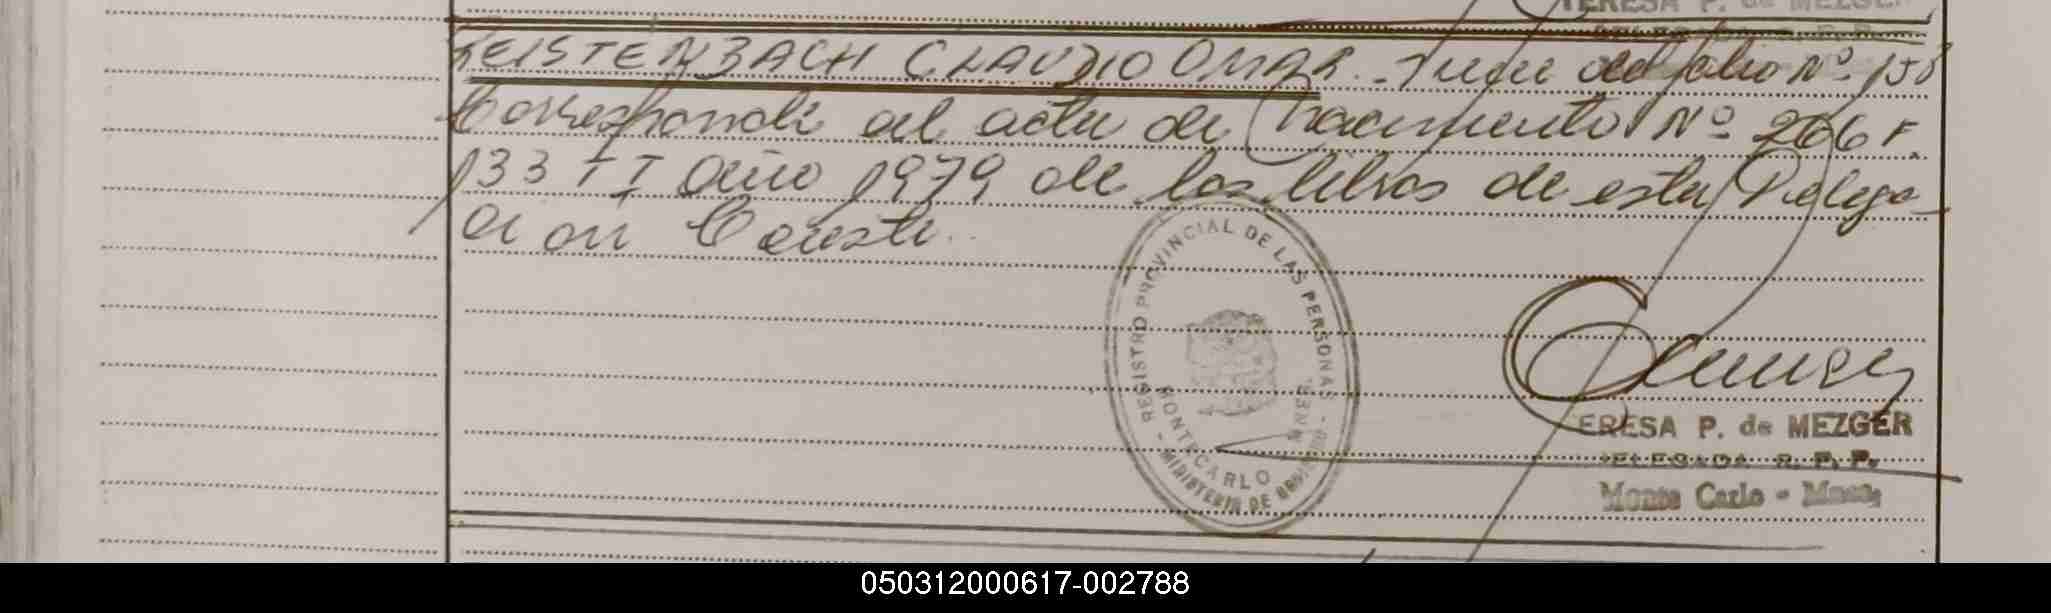 TERESA P. de MEZGER
REISTENBACH CLAUDIO OMAR. - Viene del folio Nº 158
Corresponde al acta de nacimiento Nº 266 F.
133 TI año 1979 de los libros de esta Delega-
ción Conste.
REGISTRO PROVINCIAL DE LAS PERSONAS - MINISTERIO DE GOBIERNO
MONTECARLO
ERESA P. de MEZGER
DELEGADA R. P. P.
Monte Carlo - Mnes
050312000617-002788